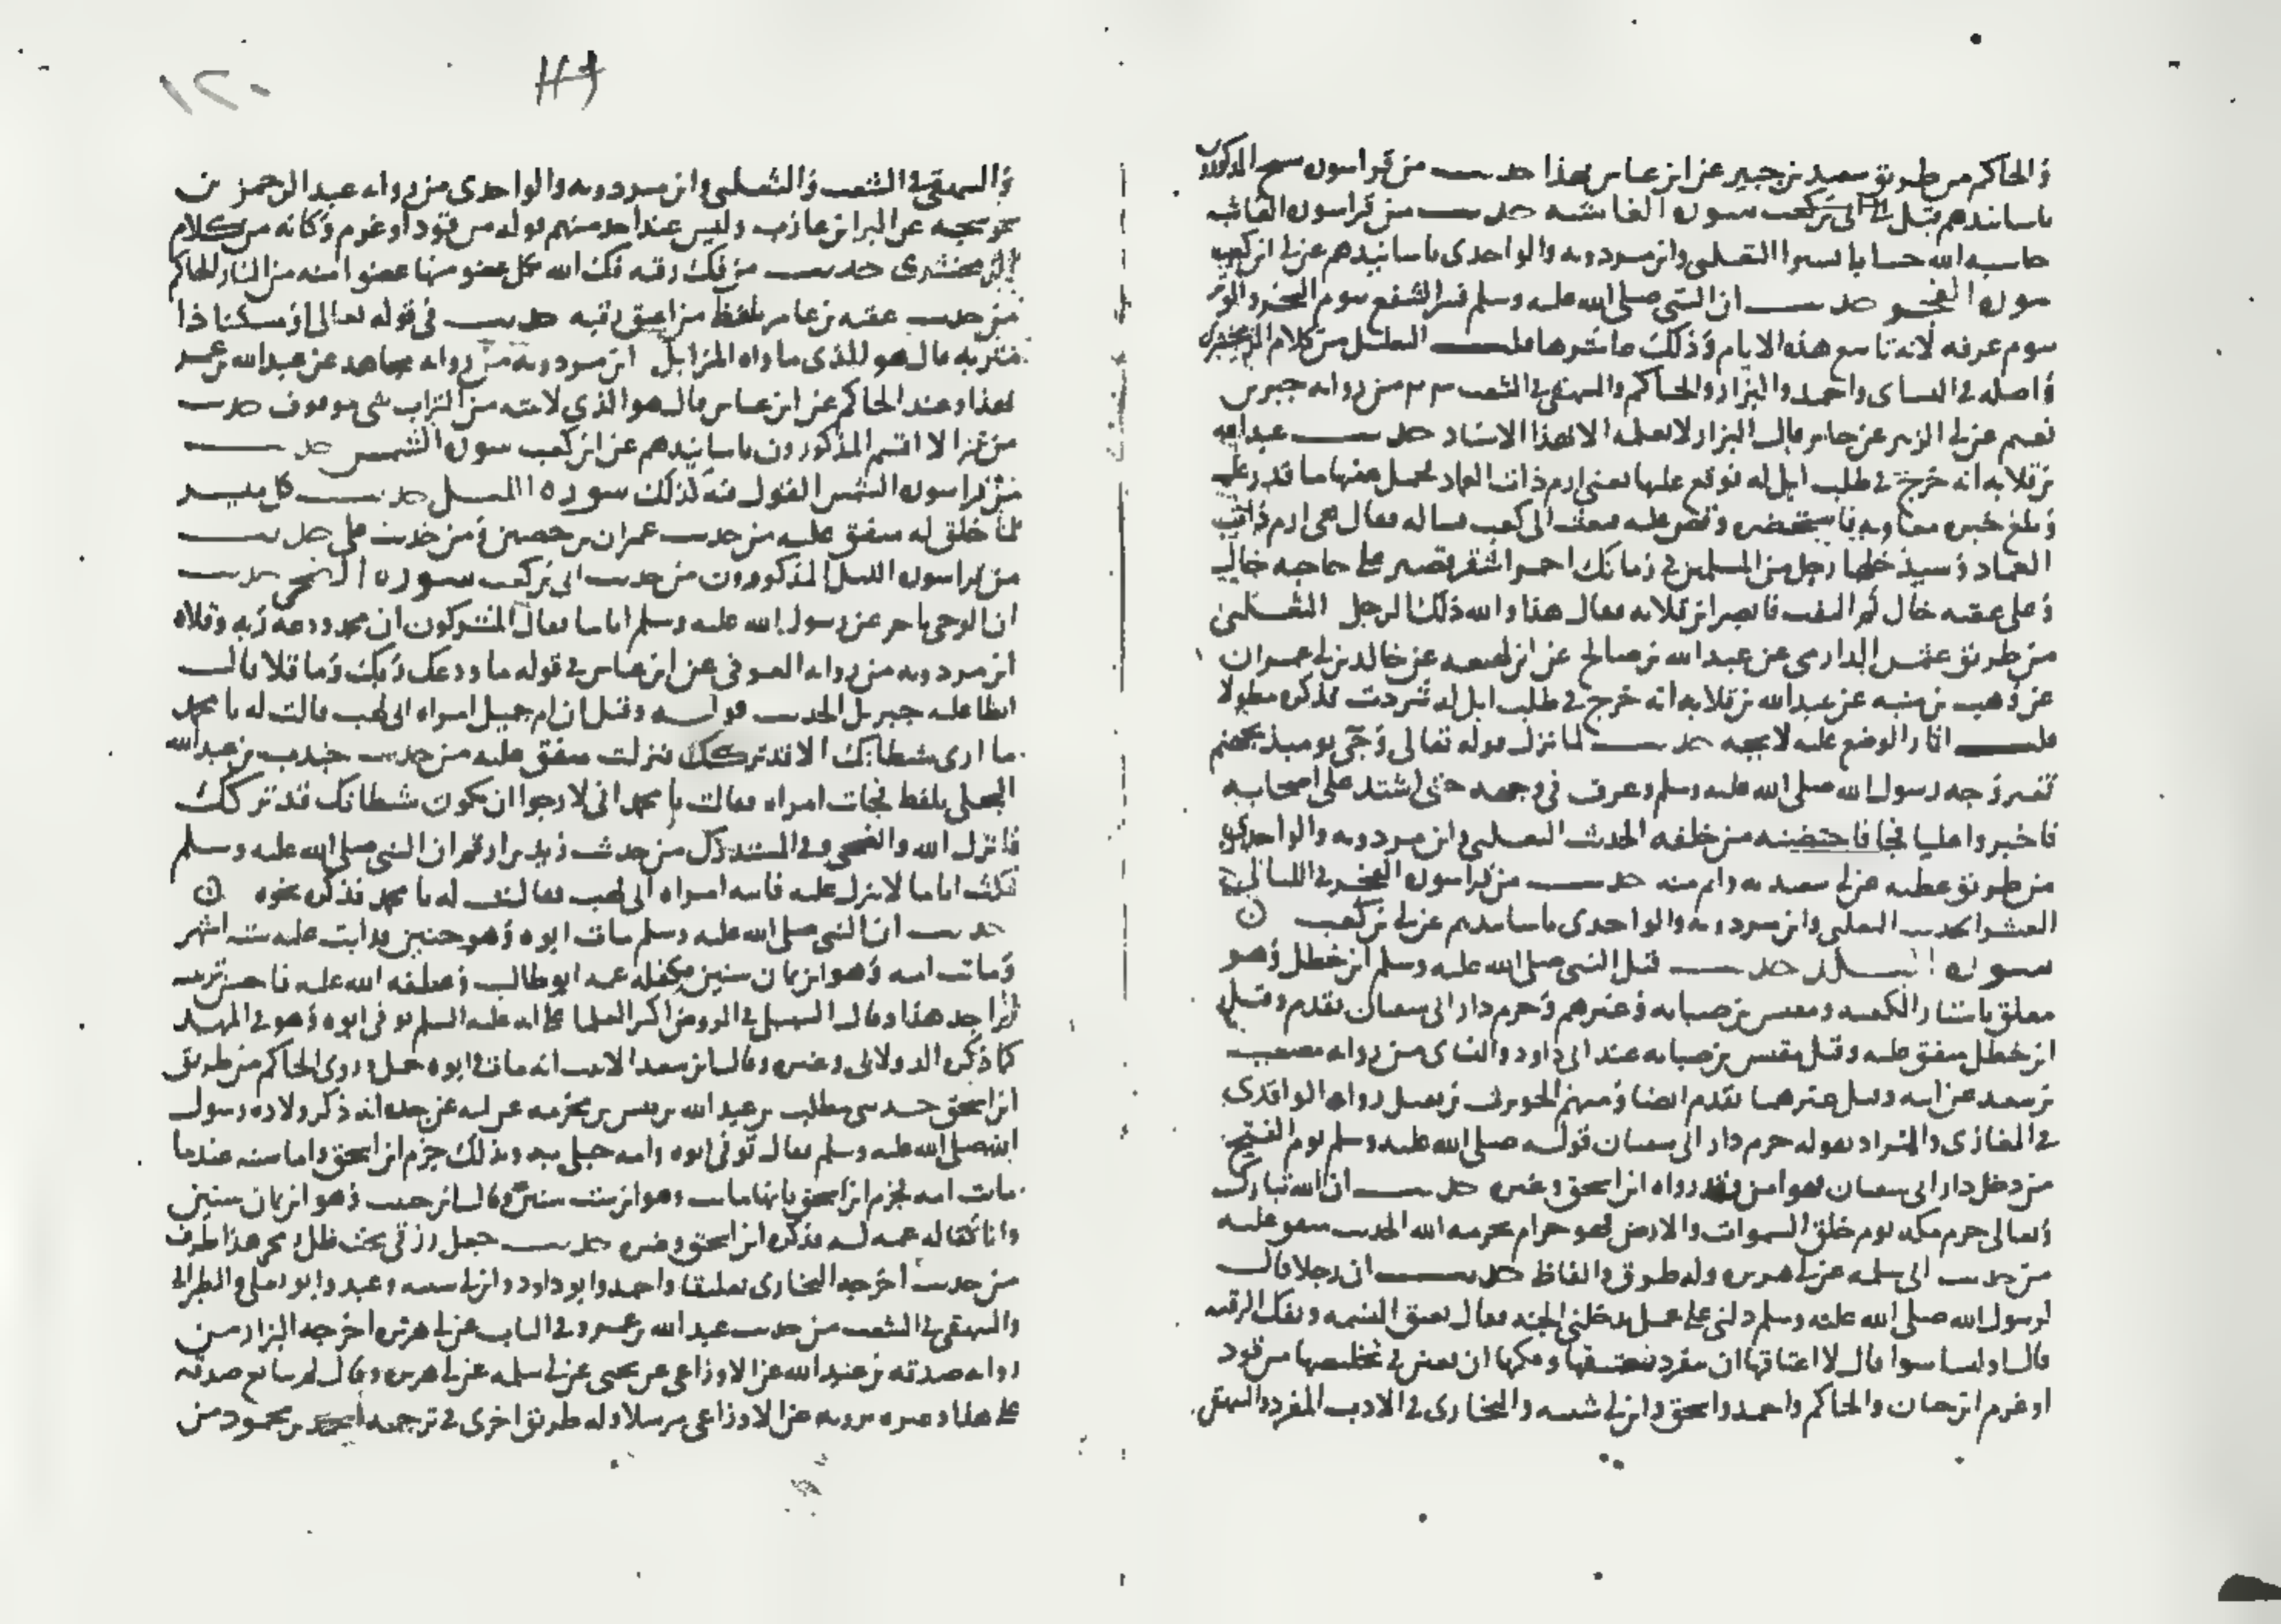 والحاكم من طريق سعيد بن جبير عن ابن عباس بهذا حديث من قرا سورة سبح المذكورون
باسانيدهم قبل الى ابي بن كعب سورة الغاشية حديث من قرا سورة الغاشية
حاسبه الله حسابا يسيرا الثعلبي وابن مردويه والواحدي باسانيدهم عن ابي بن كعب
سورة الفجر حديث ان النبي صلى الله عليه وسلم فسر الشفع بيوم النحر والوتر
بيوم عرفه لانه تاسع هذه الايام وذلك عاشرها قلت التعليل من كلام الزمخشري
واصله في النساي واحمد والبزار والحاكم والبيهقي في الشعب من رواية خير بن
نعيم عن ابي الزبير عن جابر قال البزار لا نعلمه الا بهذا الاسناد حديث عبد الله
بن قلابه انه خرج في طلب ابل له فوقع عليها يعني ارم ذات العماد فحمل منها ما قدر عليه
وبلغ خبره معاوية فاستحضره وقص عليه فبعث الى كعب فساله فقال هي ارم ذات
العماد وسيدخلها رجل من المسلمين في زمانك احمر اشقر قصير على حاجبه خال
وعلى عقبه خال ثم التفت فابصر ابن قلابه فقال هذا والله ذلك الرجل الثعلبي
من طريق عثمن الدارمي عن عبد الله بن صالح عن ابن لهيعه عن خالد بن ابي عمران
عن وهب بن منبه عن عبد الله بن قلابه انه خرج في طلب ابل له شردت فذكره مطولا
قلت اثار الوضع عليه لايحه حديث لما نزل قوله تعالى وجي يوميذ بجهنم
تغير وجه رسول الله صلى الله عليه وسلم وعرف في وجهه حتى اشتد على اصحابه
فاخبروا عليا فجا فاحتضنه من خلفه الحديث الثعلبي وابن مردويه والواحدي
من طريق عطيه عن ابي سعيد به واتم منه حديث من قرا سورة الفجر في الليالي
العشر الحديث الثعلبي وابن مردويه والواحدي باسانيدهم عن ابي بن كعب
سورة البلد حديث قتل النبي صلى الله عليه وسلم ابن خطل وهو
معلق باستار الكعبه ومقيس بن صبابه وغيرهم وحرم دار ابي سفيان تقدم وقتل
ابن خطل متفق عليه وقتل مقيس بن صبابه عند ابي داود والنساي من رواية مصعب
بن سعد عن ابيه وقتل غيرهما تقدم ايضا ومنهم الحويرث بن نفيل رواه الواقدي
في المغازي والمراد بقوله حرم دار ابي سفيان قوله صلى الله عليه وسلم يوم الفتح
من دخل دار ابي سفيان فهو امن وقد رواه ابن اسحق وغيره حديث ان الله تبارك
وتعالى حرم مكه يوم خلق السموات والارض فهو حرام بحرمه الله الحديث متفق عليه
من حديث ابي سلمه عن ابي هريره وله طرق والفاظ حديث ان رجلا قال
لرسول الله صلى الله عليه وسلم دلني على عمل يدخلني الجنه فقال تعتق النسمه وتفك الرقبه
قال اوليسا سوا قال لا اعتاقها ان تنفرد بعتقها وفكها ان تعين في تخليصها من قود
او غرم ابن حبان والحاكم واحمد واسحق وابن ابي شيبه والبخاري في الادب المفرد والبيهقي
١٢٠
والبيهقي في الشعب والثعلبي وابن مردويه والواحدي من رواية عبد الرحمن بن
عوسجه عن البرا بن عازب وليس عند احد منهم قوله من قود او غرم وكانه من كلام
الزمخشري حديث من فك رقبه فك الله بكل عضو منها عضوا منه من النار الحاكم
من حديث عقبه بن عامر بلفظ من اعتق رقبه حديث في قوله تعالى او مسكينا ذا
متربه قال هو الذي ماواه المزابل ابن مردويه من رواية مجاهد عن عبد الله بن عمر
بهذا وعند الحاكم عن ابن عباس قال هو الذي لا يقيه من التراب شي موقوف حديث
من قرا لا اقسم المذكورون باسانيدهم عن ابي بن كعب سورة الشمس حديث
من قرا سورة الشمس القول فيه كذلك سورة الليل حديث كل ميسر
لما خلق له متفق عليه من حديث عمران بن حصين ومن حديث علي حديث
من قرا سورة الليل المذكورون من حديث ابي بن كعب سورة الضحى حديث
ان الوحي تاخر عن رسول الله عليه وسلم اياما فقال المشركون ان محمدا ودعه ربه وقلاه
ابن مردويه من رواية العوفي عن ابن عباس في قوله ما ودعك ربك وما قلا قال
ابطا عليه جبريل الحديث قوله وقيل ان ام جميل امراه ابي لهب قالت له يا محمد
ما ارى شيطانك الا قد تركك فنزلت متفق عليه من حديث جندب بن عبد الله
البجلي بلفظ فجات امراه فقالت يا محمد اني لارجوا ان يكون شيطانك قد تركك
فانزل الله والضحى وفي المستدرك من حديث زيد بن ارقم ان النبي صلى الله عليه وسلم
مكث اياما لا ينزل عليه فاتته امراه ابي لهب فقالت له يا محمد فذكره نحوه
حديث ان النبي صلى الله عليه وسلم مات ابوه وهو جنين قد اتت عليه ستة اشهر
وماتت امه وهو ابن ثمان سنين فكفله عمه ابو طالب وعطفه الله عليه فاحسن تربيته
لم اجد هذا وقال السهيلي في الروض اكثر العلما على انه عليه السلم توفي ابوه وهو في المهد
كما ذكره الدولابي وغيره وقال ابن سعد الاثبت انه مات ابوه وهو حمل وروى الحاكم من طريق
ابن اسحق حدثني مطلب بن عبد الله بن قيس بن مخرمه عن ابيه عن جده انه ذكر ولاده رسول
الله صلى الله عليه وسلم فقال توفي ابوه وامه حبلى به وبذلك جزم ابن اسحق واما سنه عندما
ماتت امه فجزم ابن اسحق بانها ماتت وهو ابن ست سنين وقال ابن حبيب وهو ابن ثمان سنين
واما كفاله عمه له فذكره ابن اسحق وغيره حديث جعل رزقي تحت ظل رمحي هذا طرف
من حديث اخرجه البخاري تعليقا واحمد وابو داود وابن ابي شيبه وعبد وابو يعلى والطبراني
والبيهقي في الشعب من حديث عبد الله بن عمر وفي الباب عن ابي هريره اخرجه البزار من
رواية صدقه بن عبد الله عن الاوزاعي عن يحيى عن ابي سلمه عن ابي هريره وقال لم يتابع صدقه
على هذا وغيره يرويه عن الاوزاعي مرسلا وله طريق اخرى في ترجمه احمد بن محمود من